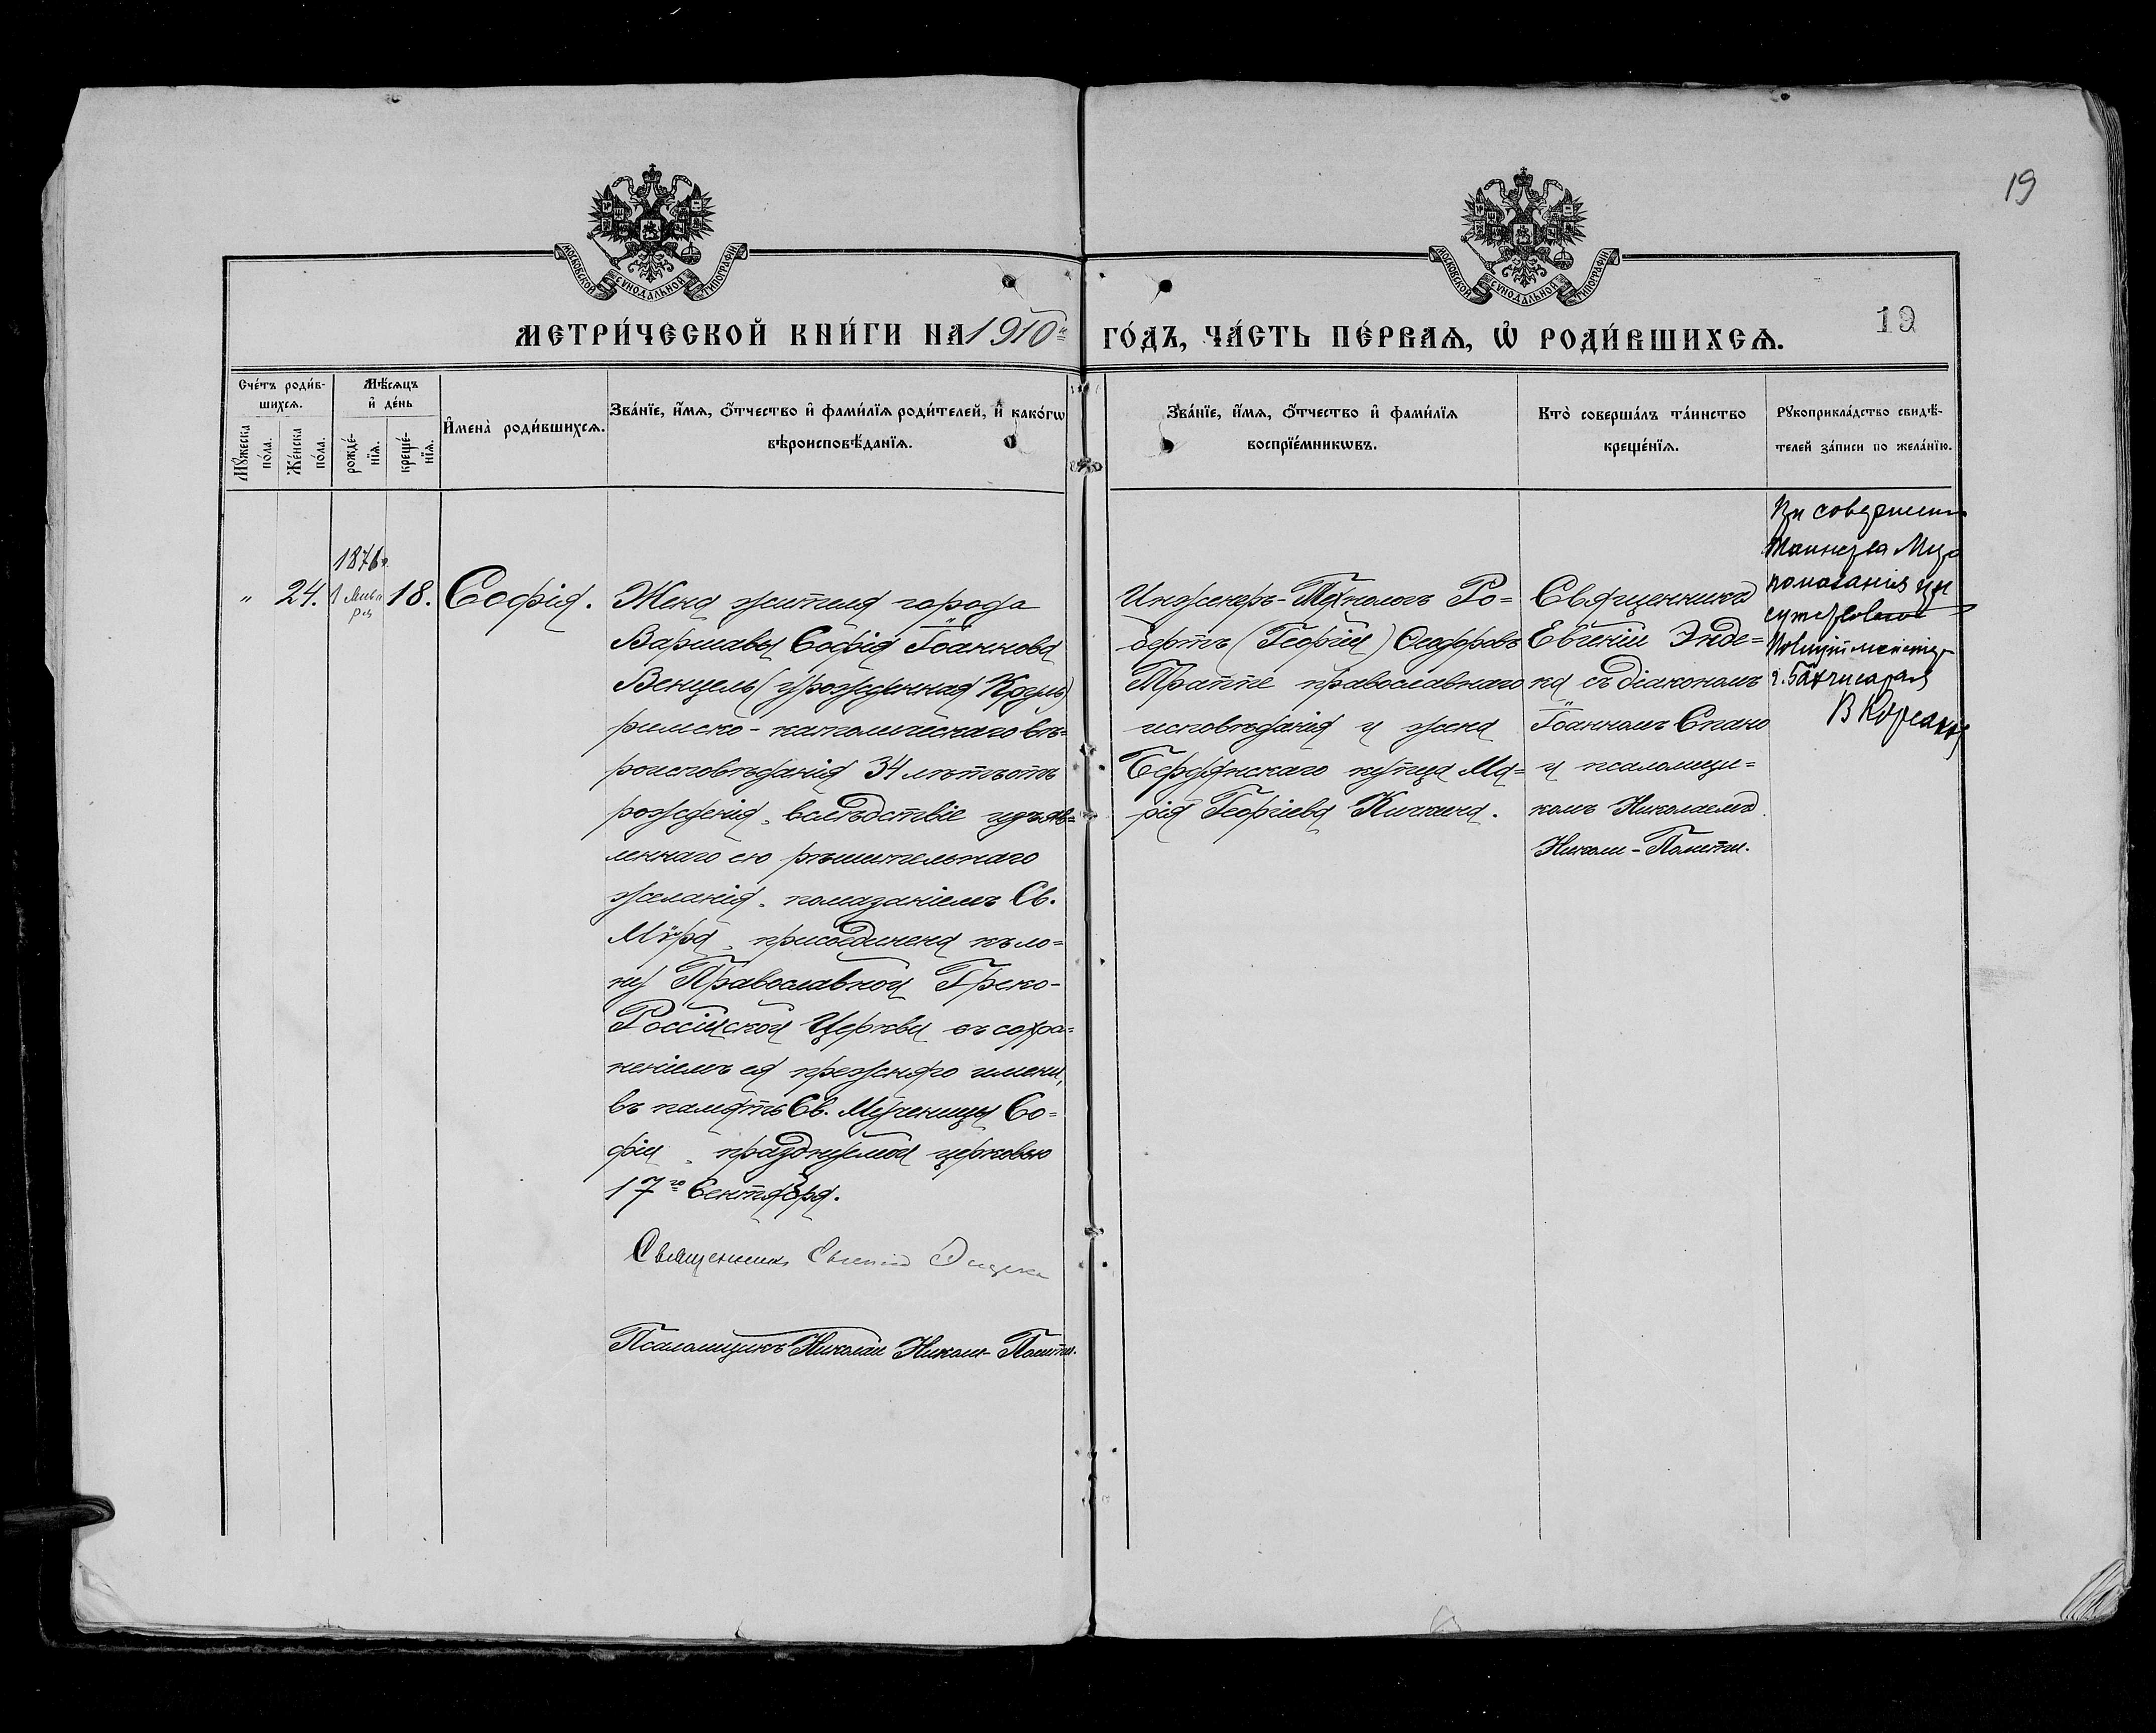 19
МОСКОВСКОЙ СѴНОДАЛЬНОЙ ТИПОГРАФІИ
МОСКОВСКОЙ СѴНОДАЛЬНОЙ ТИПОГРАФІИ
МЕТРИ́ЧЕСКОЙ КНИ́ГИ НА 1910й ГО́ДЪ, ЧА́СТЬ ПЕ́РВАѦ, Ѡ҆ РОДИ́ВШИХСѦ.
19
Сче́тъ роди́в-
шихсѧ.
Мꙋ́жеска
по́ла.
Же́нска
по́ла.
Мѣ́сѧцъ
и҆ де́нь
рожде́-
нїѧ.
креще́-
нїѧ.
И҆мена̀ роди́вшихсѧ.
Зва́нїе, и҆́мѧ, ѻ҆́тчество и҆ фами́лїѧ роди́телей, и҆ како́гѡ
вѣроисповѣ́данїѧ.
Зва́нїе, и҆́мѧ, ѻ҆́тчество и҆ фами́лїѧ
воспрїе́мникѡвъ.
Кто̀ соверша́лъ та́инство
креще́нїѧ.
Рꙋкоприкла́дство свидѣ́-
телей за́писи по жела́нїю.
" 24.
1876г.
1 Января
18.
Софія.
Жена жителя города
Варшавы Софія Іоаннова
Венцель (урожденная Круль)
римско-католическаго вѣ=
роисповѣданія 34 лѣтъ отъ
рожденія, вслѣдствіе изъяв=
леннаго ею рѣшительнаго
желанія, помазаніемъ Св.
Мѵра, присоединена къ ло=
ну Православной Греко-
Россійской Церкви съ сохра=
неніемъ ея прежняго имени,
въ память Св. Мученицы Со=
фіи, празднуемой церковью
17го Сентября.
Священникъ Евгеній Эндека
Псаломщикъ Николай Николи-Памети.
Инженеръ-Технологъ Ро=
бертъ (Георгій) Ѳеодоровъ
Траппе православнаго
исповѣданія и жена
Бердянскаго купца Ма=
рія Георгіева Кичина.
Священникъ
Евгеній Энде=
ка съ діакономъ
Іоанномъ Спано
и псаломщи=
комъ Николаемъ
Николи-Памети.
При совершеніи
Таинства Мѵро
помазанія при
сутствовалъ
Полицiймейстеръ
г. Бахчисарая